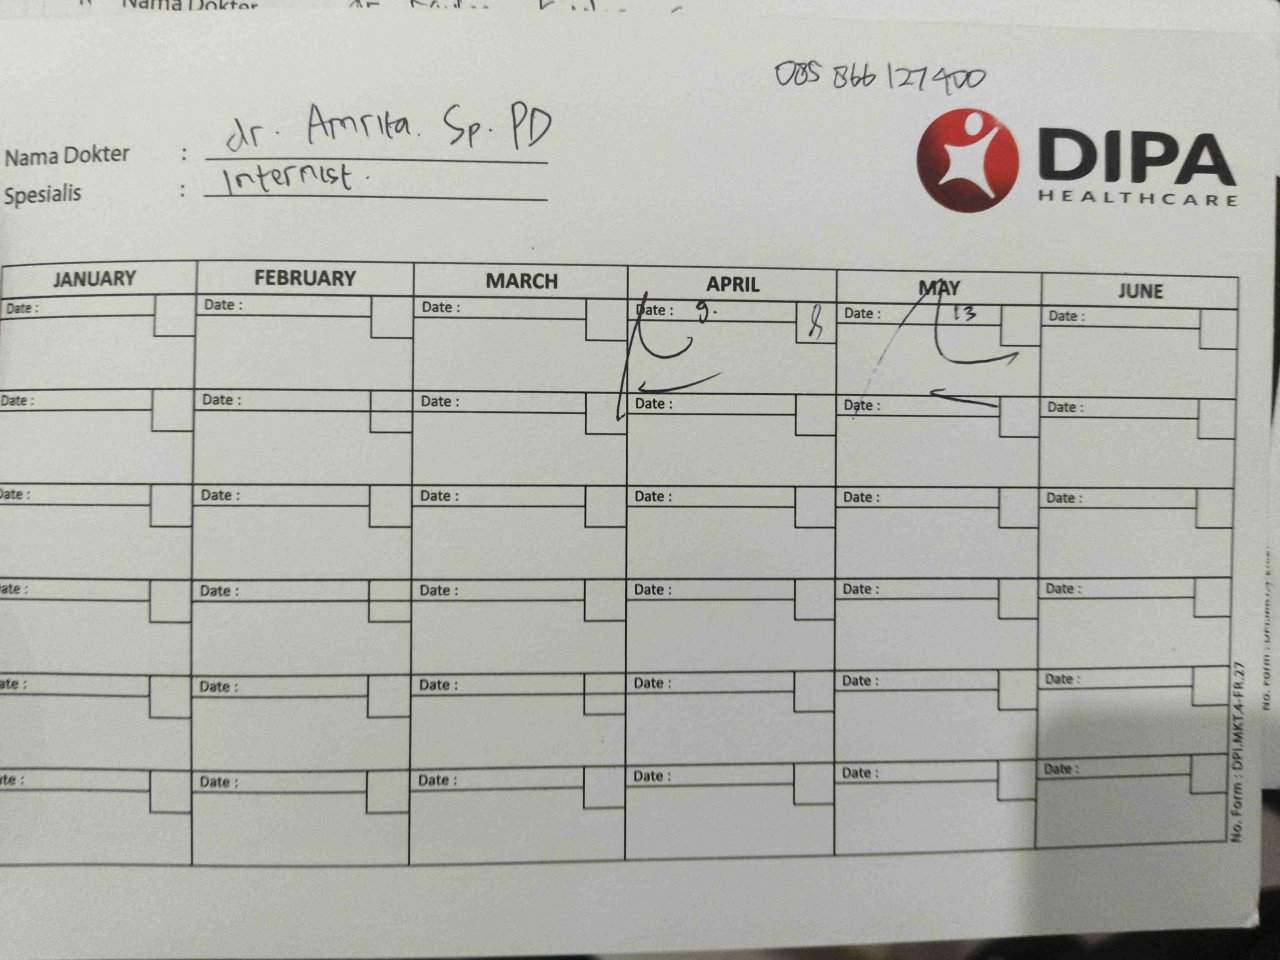 Nama Dokter
085 866 127400
Nama Dokter : dr. Amrita. Sp. PD
Spesialis : Internist.
DIPA
HEALTHCARE
JANUARY FEBRUARY MARCH APRIL MAY JUNE
Date : Date : Date : Date : 9. Date : 13 Date :
Date : Date : Date : Date : Date : Date :
Date : Date : Date : Date : Date : Date :
ate : Date : Date : Date : Date : Date :
ate : Date : Date : Date : Date : Date :
ate : Date : Date : Date : Date : Date :
No. Form : DPI.MKT.4-FR.27